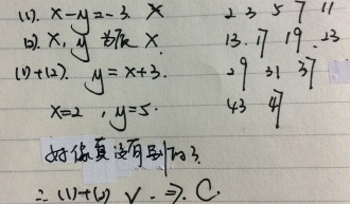 (1). x-y=-3. X
2 3 5 7 11
(2). x, y 为质 X.
13. 17 19. 23
(1)+(2). y=x+3.
29 31 37
x=2, y=5.
43 47
好像真没有别的了.
∴ (1)+(2) √. ⇒. C.